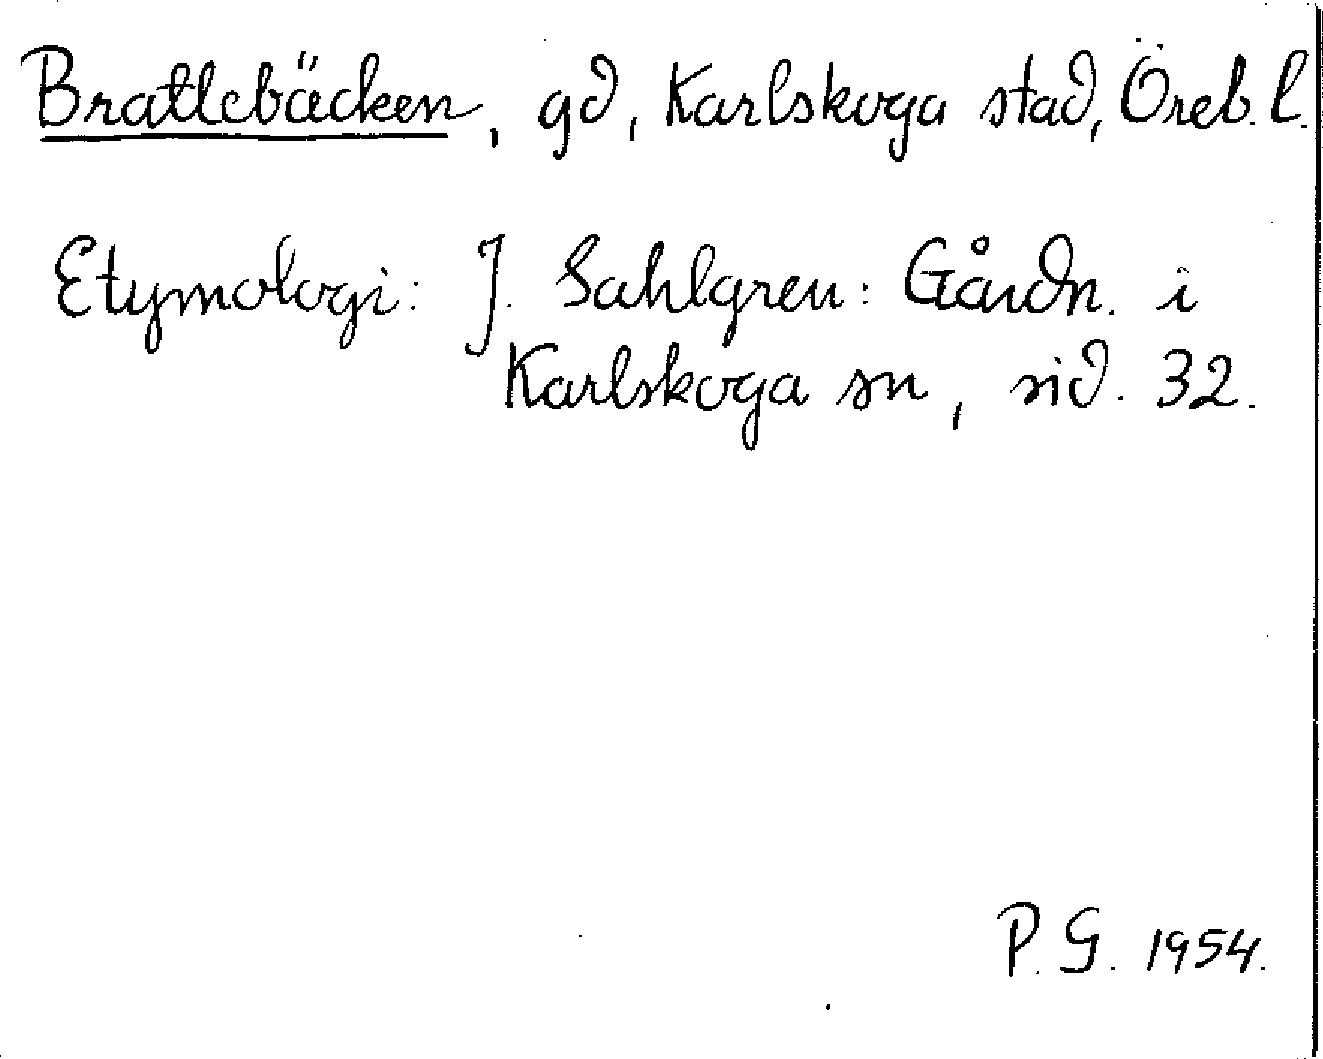 Brattebäcken, gd, Karlskoga stad, Öreb. l.
Etymologi: J. Sahlgren: Gårdn. i
Karlskoga sn, sid. 32.
P. G. 1954.